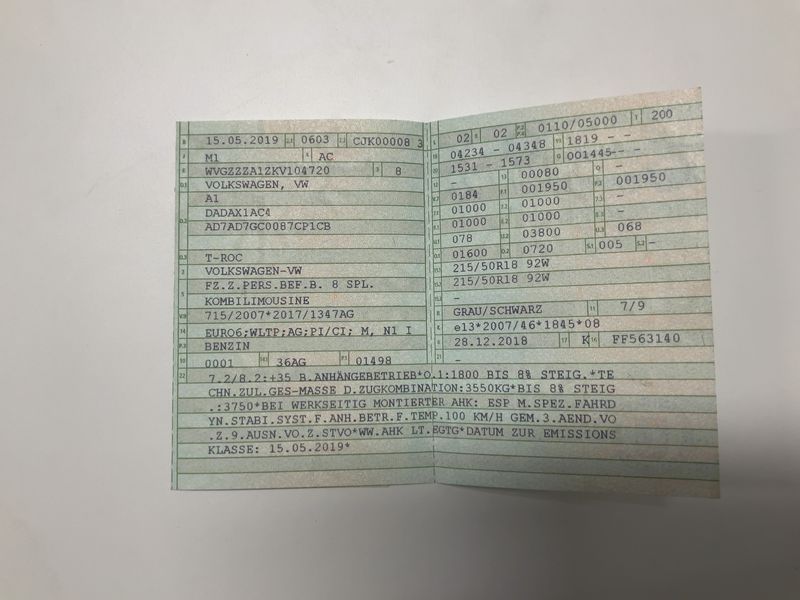 B 15.05.2019 2.1 0603 2.2 CJK00008 3
J M1 4 AC
E WVGZZZA1ZKV104720 3 8
D.1 VOLKSWAGEN, VW
A1
D.2 DADAX1AC4
AD7AD7GC0087CP1CB
D.3 T-ROC
2 VOLKSWAGEN-VW
5 FZ.Z.PERS.BEF.B. 8 SPL.
KOMBILIMOUSINE
V.9 715/2007*2017/1347AG
14 EURO6;WLTP;AG;PI/CI; M, N1 I
P.3 BENZIN
10 0001 14.1 36AG P.1 01498
L 02 9 02 P.2 P.4 0110/05000 T 200
18 04234 - 04348 19 1819 - -
20 1531 - 1573 G 001445--
12 - 13 00080 Q -
V.7 0184 F.1 001950 F.2 001950
7.1 01000 7.2 01000 7.3 -
8.1 01000 8.2 01000 8.3 -
U.1 078 U.2 03800 U.3 068
O.1 01600 O.2 0720 S.1 005 S.2 -
15.1 215/50R18 92W
15.2 215/50R18 92W
15.3 -
R GRAU/SCHWARZ 11 7/9
K e13*2007/46*1845*08
6 28.12.2018 17 K 16 FF563140
21 -
22 7.2/8.2:+35 B.ANHÄNGEBETRIEB*O.1:1800 BIS 8% STEIG.*TE
CHN.ZUL.GES-MASSE D.ZUGKOMBINATION:3550KG*BIS 8% STEIG
.:3750*BEI WERKSEITIG MONTIERTER AHK: ESP M.SPEZ.FAHRD
YN.STABI.SYST.F.ANH.BETR.F.TEMP.100 KM/H GEM.3.AEND.VO
.Z.9.AUSN.VO.Z.STVO*WW.AHK LT.EGTG*DATUM ZUR EMISSIONS
KLASSE: 15.05.2019*